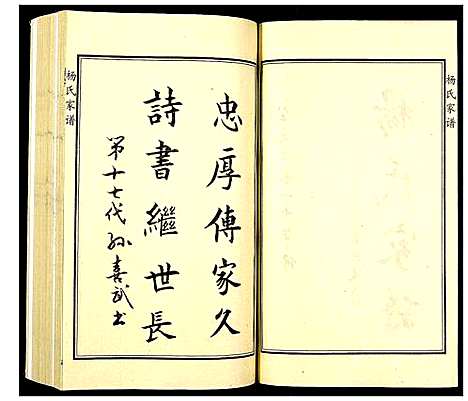 忠厚傳家久
詩書繼世長
第十七代孙喜武书
杨氏家谱
杨氏家谱